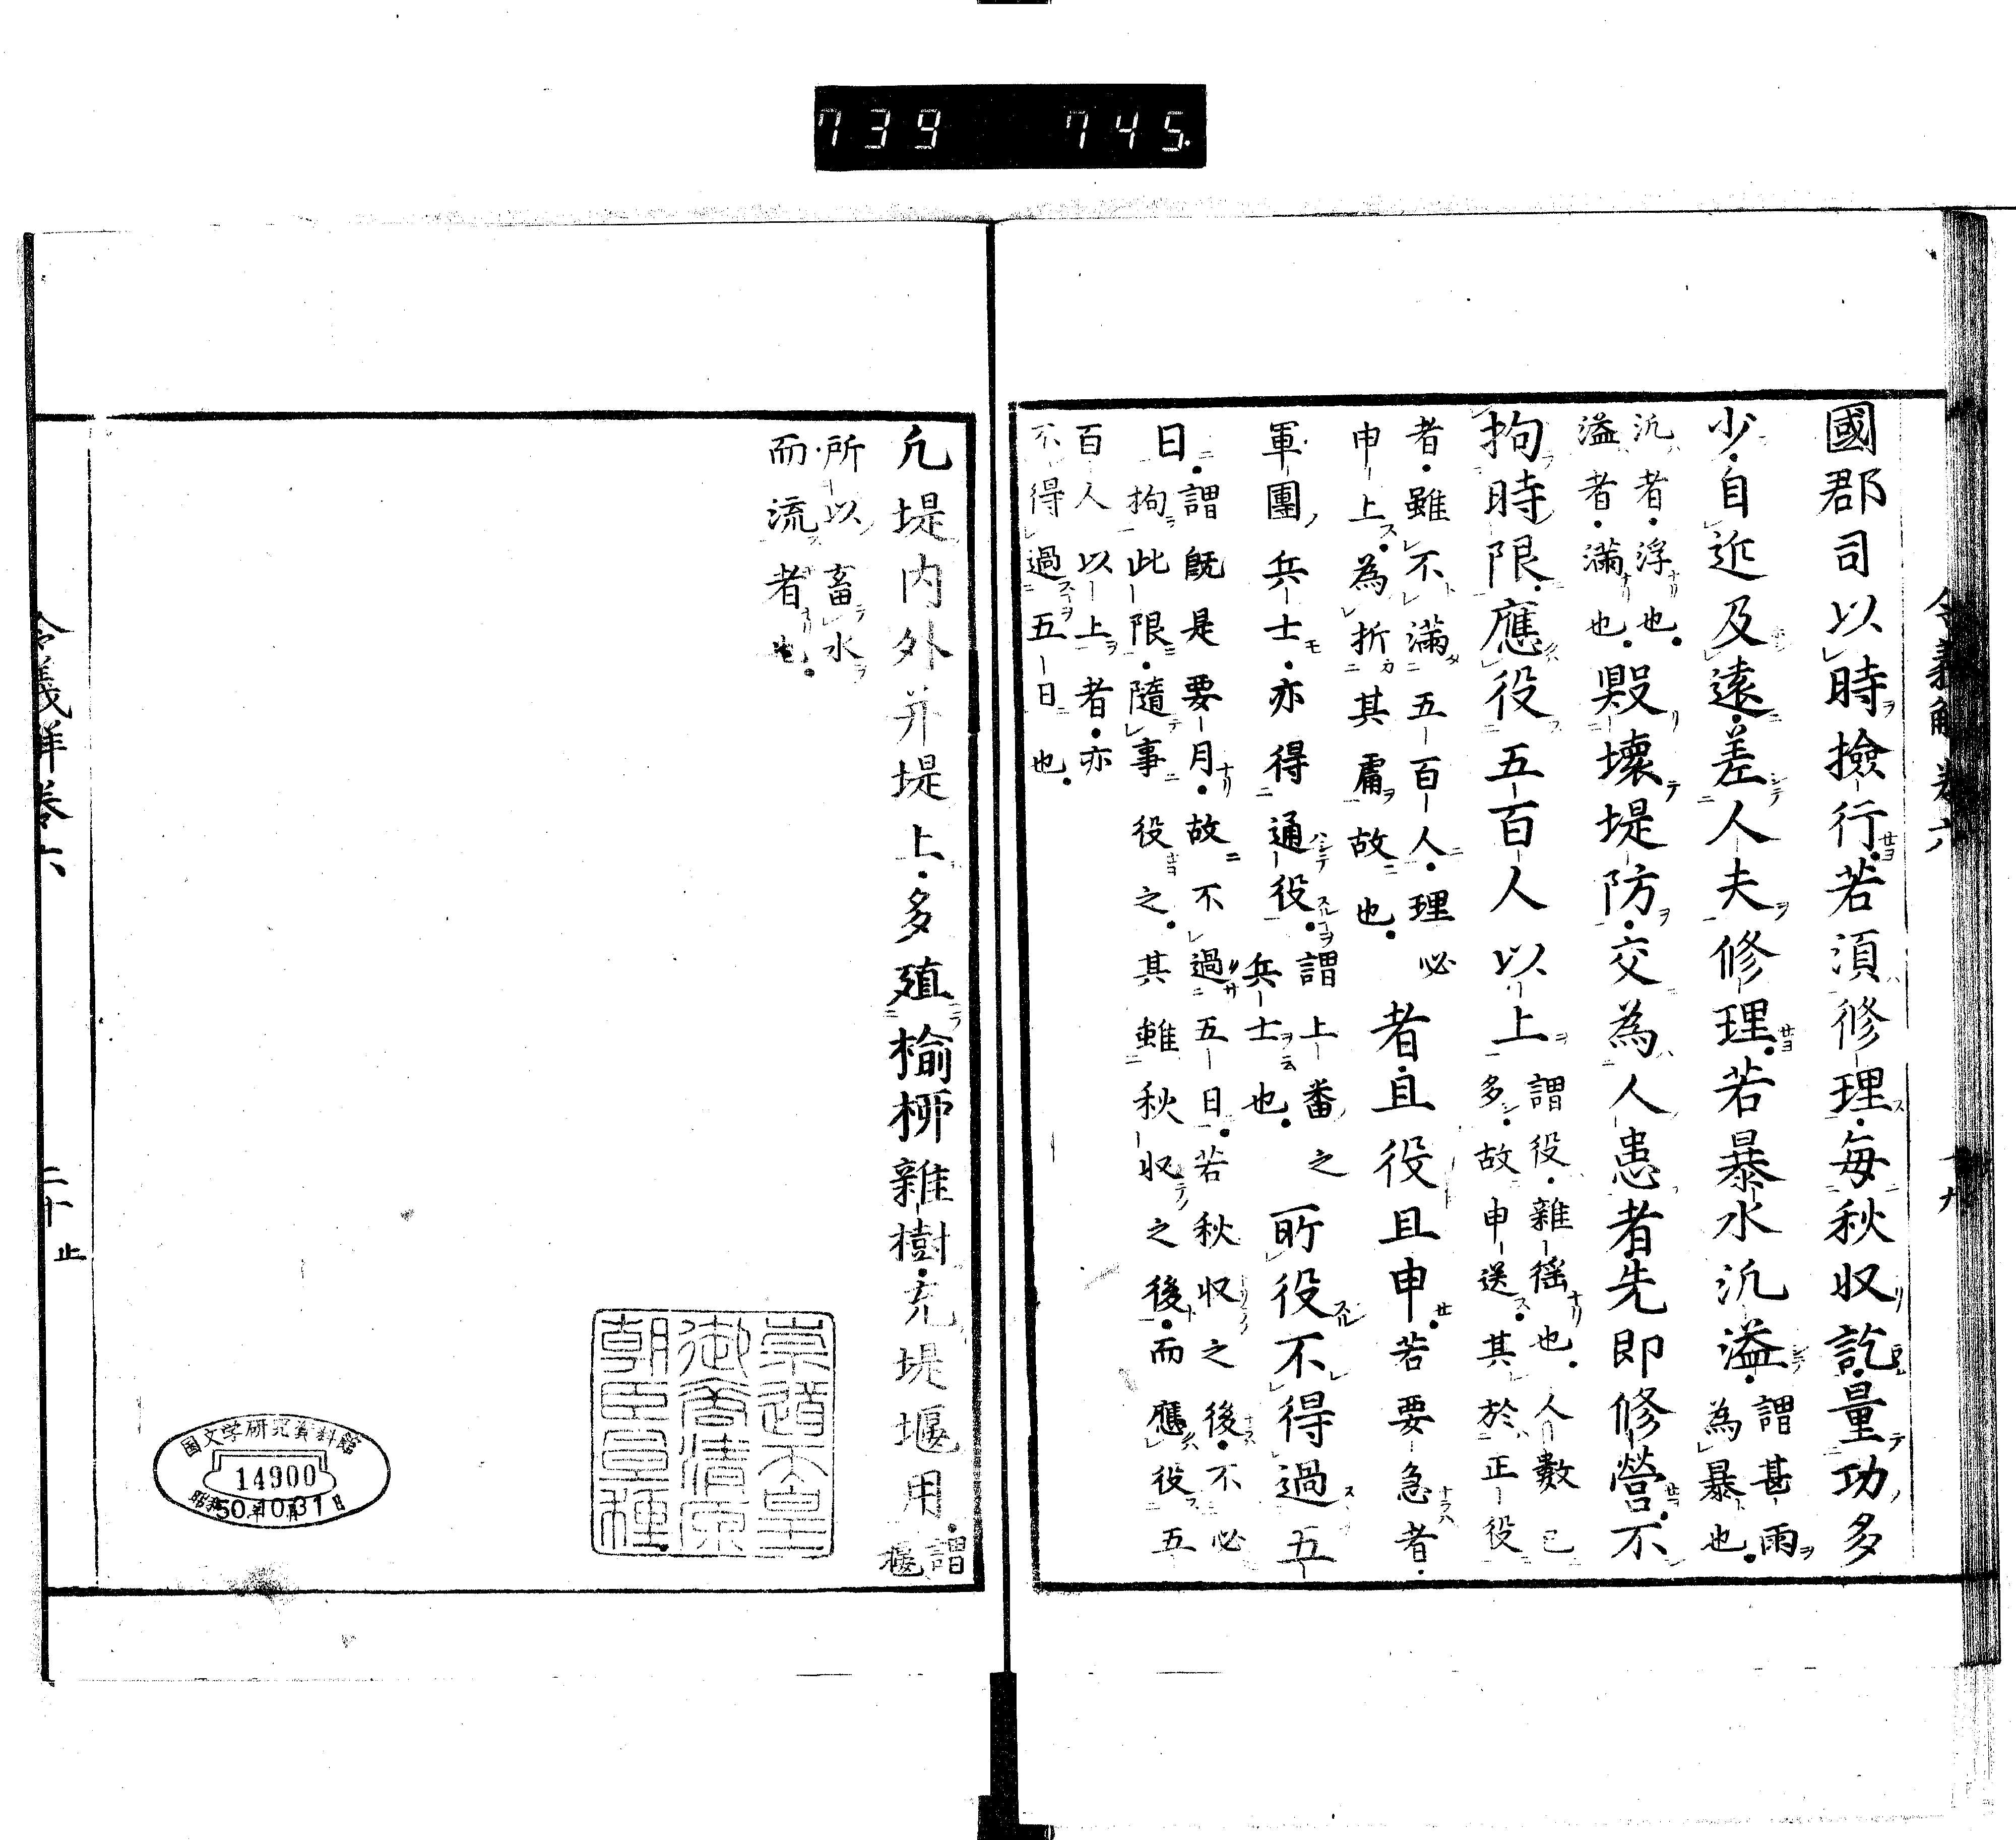 739 745
令義解卷六 十九
國郡司以時撿行若湏修理毎秋収訖量功多
少自近及遠差人夫修理若暴水汎溢謂甚雨為暴也
汎者浮也溢者滿也毀壞堤防交為人患者先即修營不
拘時限應役五百人以上謂役雜徭也人數已多故申送其於正役
者雖不滿五百人理必申上為折其庸故也者且役且申若要急者
軍團兵士亦得通役謂上番之兵士也所役不得過五
日謂既是要月故不過五日若秋収之後不必拘此限隨事役之其雖秋収之後而應役五
百人以上者亦不得過五日也
凢堤内外并堤上多殖榆栁雜樹充堤堰用謂堰
所以畜水而流者也
崇道天皇
御裔清原
朝臣
令義解卷六 二十止
国文学研究資料館
14900
昭和50年10月31日